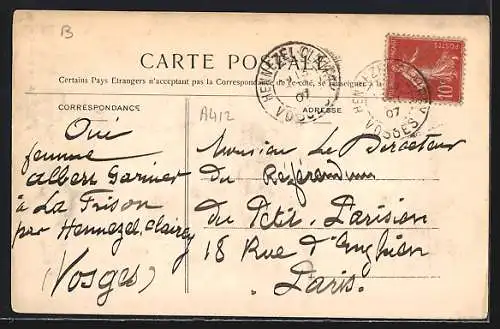 B
CARTE POSTALE
Certains Pays Etrangers n'acceptent pas la Correspondance de ce côté, se renseigner à la
CORRESPONDANCE
ADRESSE
HENNEZEL-CLAIREY
07
VOSGES
POSTES
10
HENNEZEL
07
VOSGES
A412
Oui
femme
Albert Garnier
à La Frison
par Hennezel, Clairey
(Vosges)
Monsieur Le Directeur
du Referendum
du Petit Parisien
18 Rue d'Enghien
Paris.